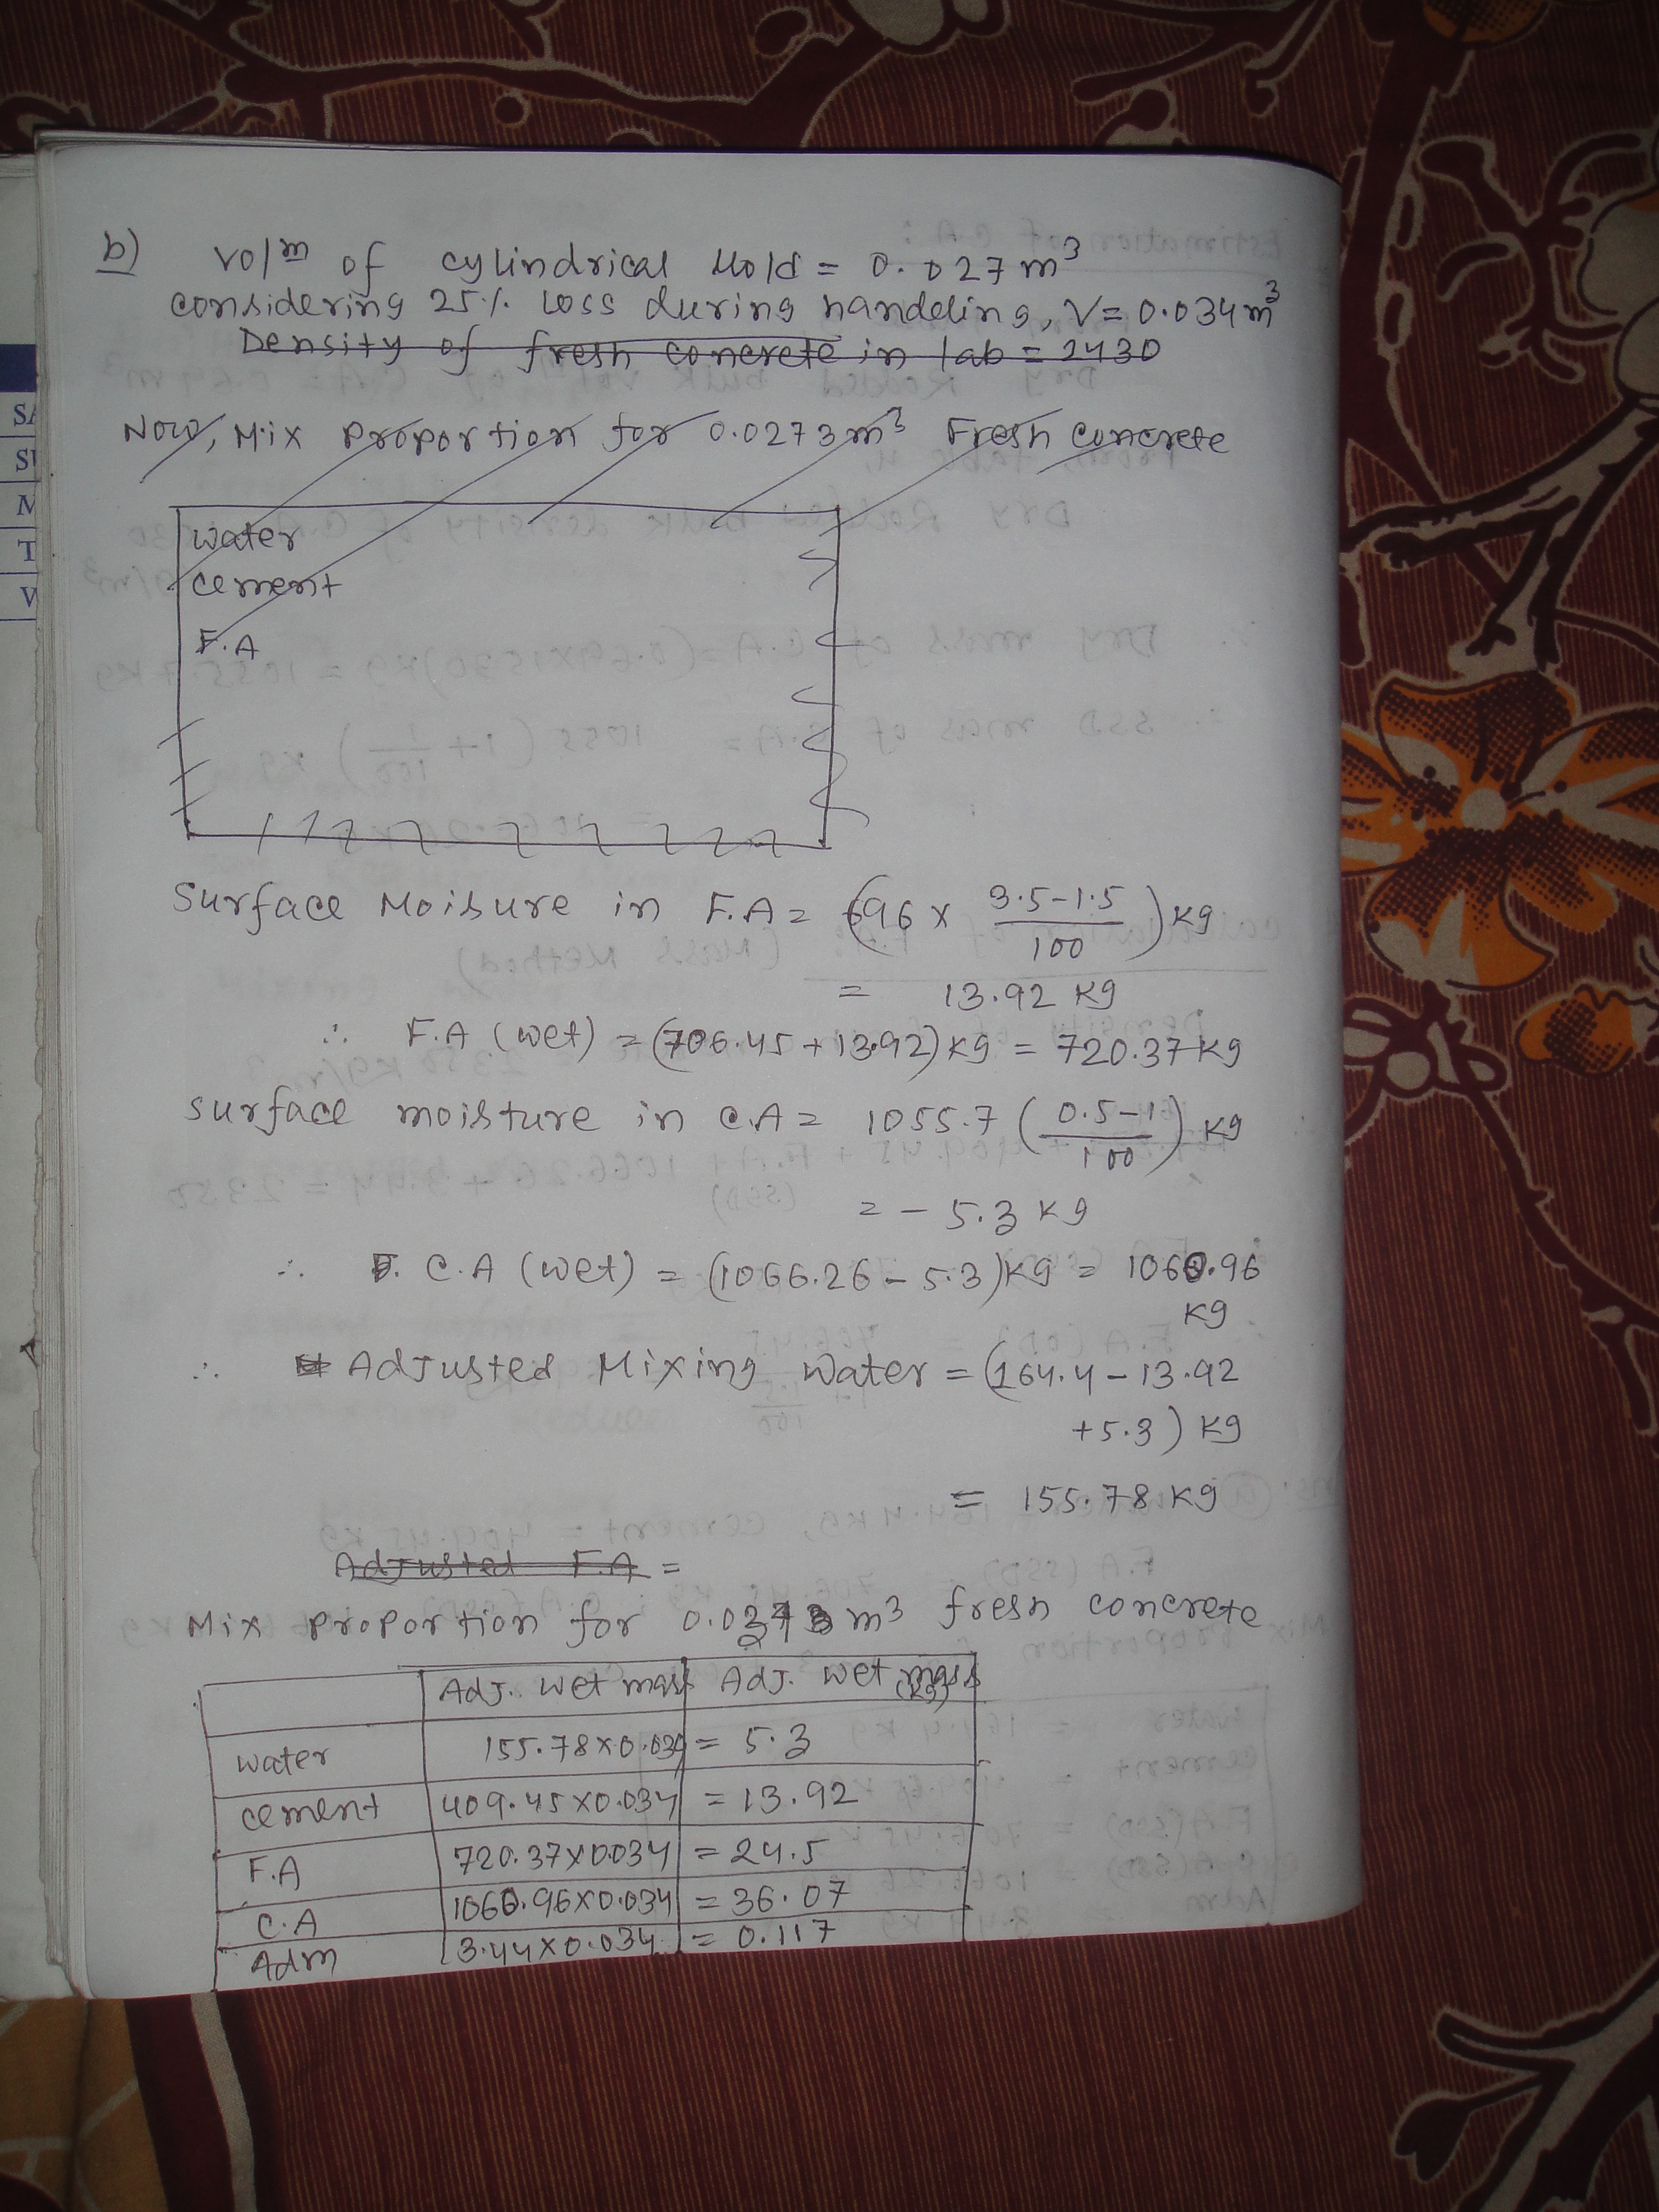 b) Vol<sup>m</sup> of cylindrical Mold = 0.027 m³
considering 25% loss during handeling, V = 0.034 m³
Density of fresh concrete in lab = 2430
Now, Mix proportion for 0.0273 m³ Fresh concrete
water
cement
F.A
Surface Moisure in F.A = (696 × (3.5-1.5)/100) kg
= 13.92 kg
∴ F.A (wet) = (706.45 + 13.92) kg = 720.37 kg
surface moisture in C.A = 1055.7 ((0.5-1)/100) kg
= - 5.3 kg
∴ C.A (wet) = (1066.26 - 5.3) kg = 1060.96
kg
∴ Adjusted Mixing water = (164.4 - 13.92
+ 5.3) kg
= 155.78 kg
Adjusted F.A =
Mix proportion for m³ fresh concrete
Adj. wet mass Adj. wet mass (kg)
water 155.78 × 0.034 = 5.3
cement 409.45 × 0.034 = 13.92
F.A 720.37 × 0.034 = 24.5
C.A 1060.96 × 0.034 = 36.07
Adm 3.44 × 0.034 = 0.117
SA
SU
M
T
W